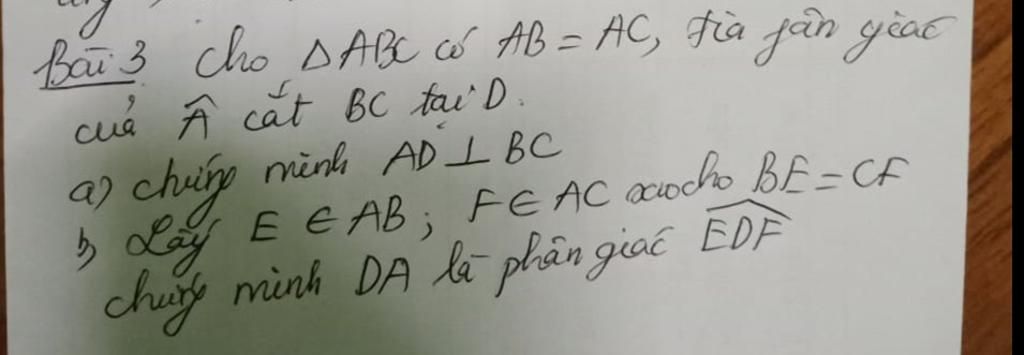 Bài 3 Cho △ABC có AB = AC, tia fân giác
của Â cắt BC tại D.
a) chứng minh AD ⊥ BC
b) Lấy E ∈ AB ; F ∈ AC sao cho BE = CF
chứng minh DA là phân giác \widehat{EDF}